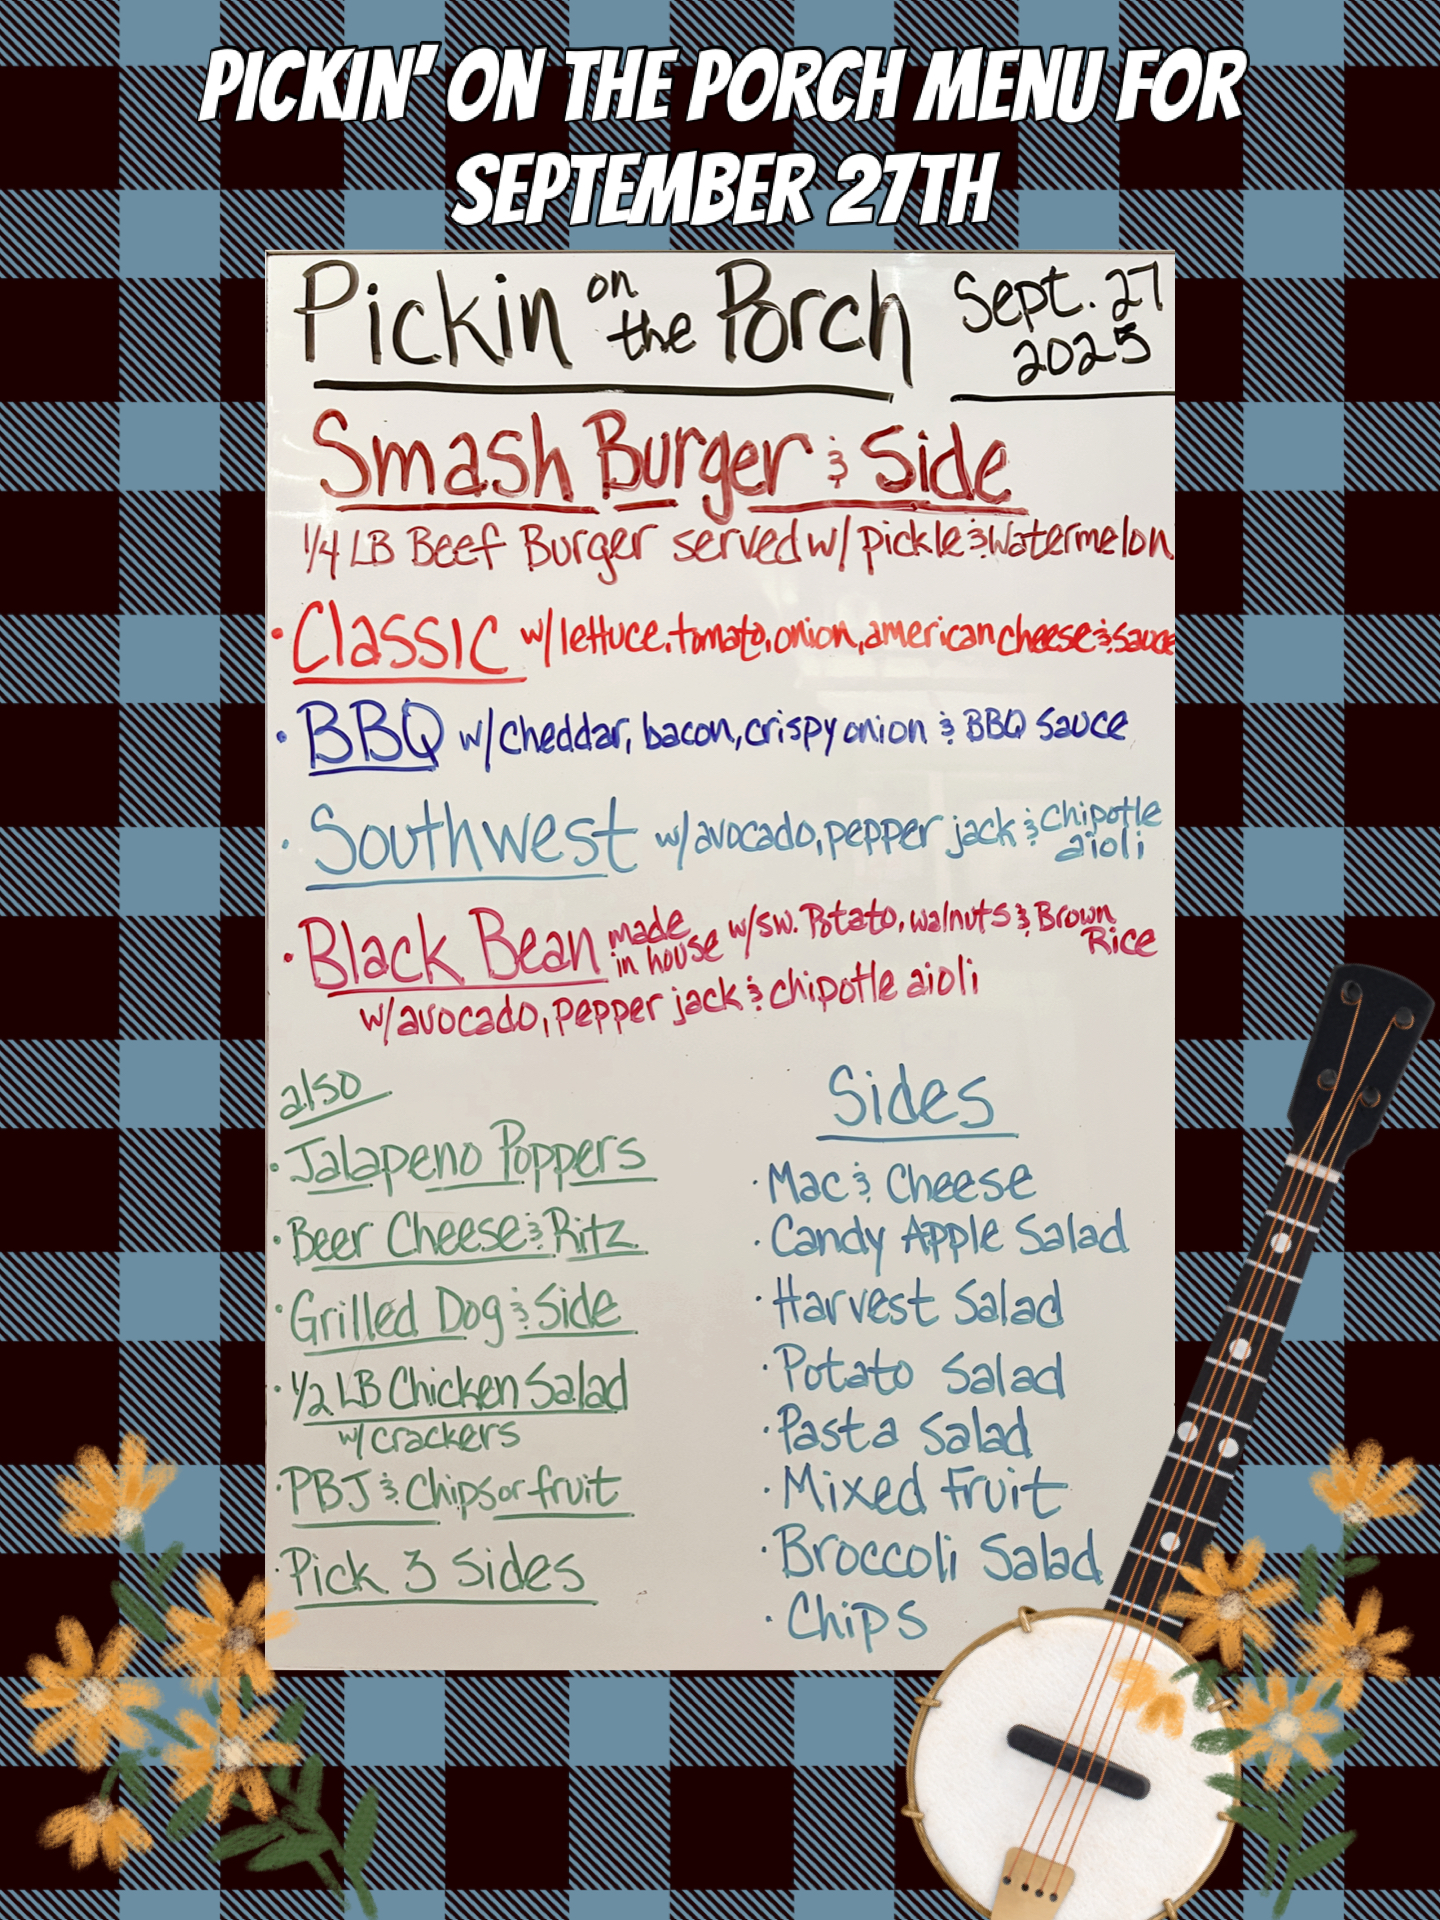 PICKIN' ON THE PORCH MENU FOR
SEPTEMBER 27TH
Pickin on the Porch
Sept. 27
2025
Smash Burger & Side
1/4 LB Beef Burger served w/ pickle & Watermelon
• Classic w/ lettuce, tomato, onion, american cheese & sauce
• BBQ w/ cheddar, bacon, crispy onion & BBQ Sauce
• Southwest w/ avocado, pepper jack & chipotle aioli
• Black Bean made in house w/ sw. Potato, walnuts & Brown Rice
w/ avocado, pepper jack & chipotle aioli
also
• Jalapeno Poppers
• Beer Cheese & Ritz
• Grilled Dog & Side
• 1/2 LB Chicken Salad
w/ crackers
• PBJ & Chips or fruit
• Pick 3 Sides
Sides
• Mac & Cheese
• Candy Apple Salad
• Harvest Salad
• Potato Salad
• Pasta Salad
• Mixed Fruit
• Broccoli Salad
• Chips